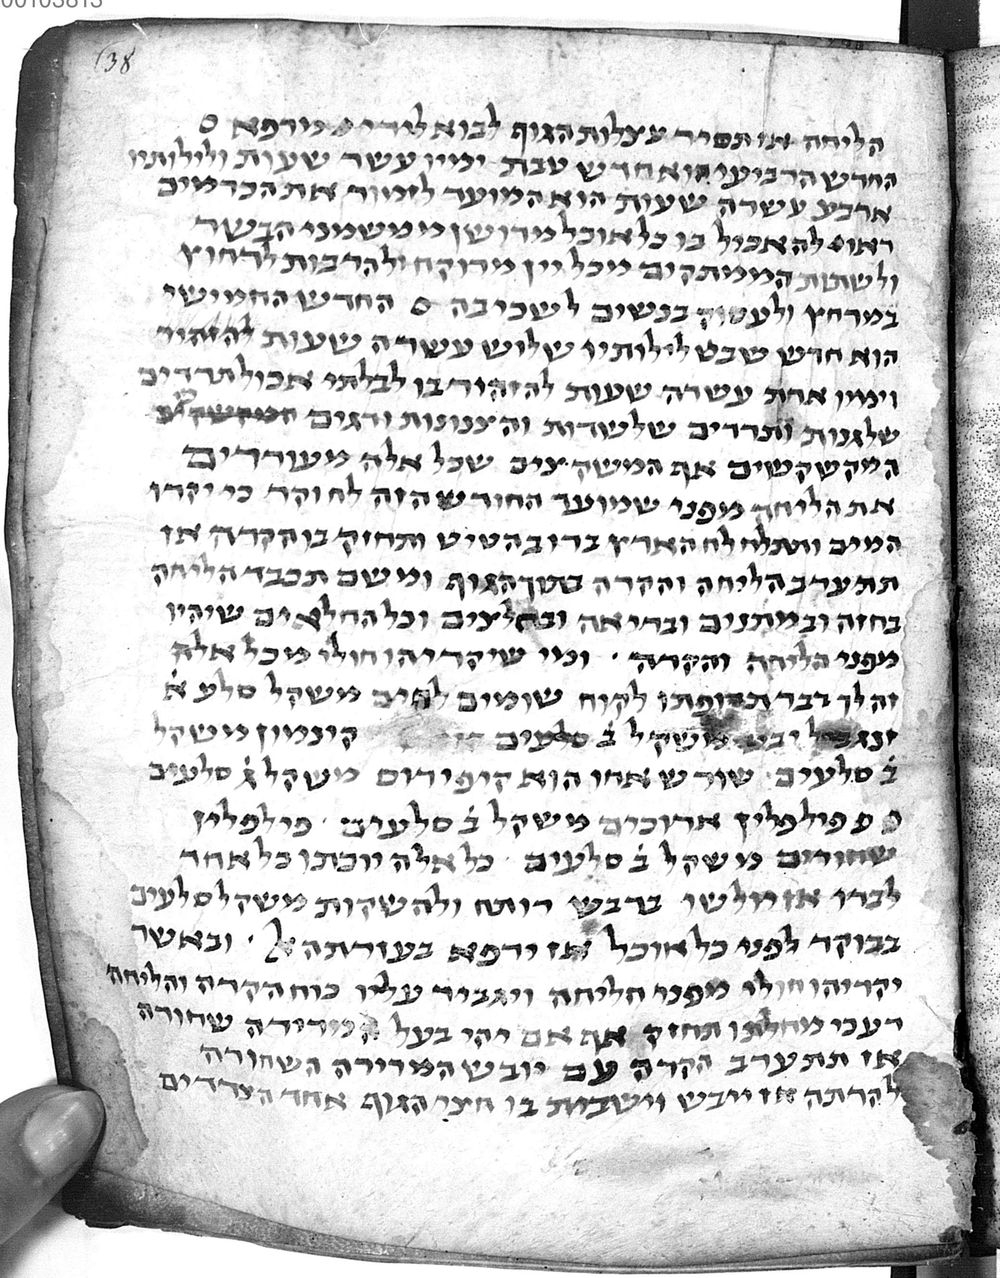 00103813
138
הליחה אז תסיר עצלות הגוף לבוא לידי מרפא
החדש הרביעי הוא חדש טבת ימיו עשר שעות ולילותיו
ארבע עשרה שעות הוא המועד לזמור את הכרמים
ראוי להאכיל בו כל אוכל מדושן וממשמני הבשר
ולשתות הממתקים מכל יין מרוקח ולהרבות לרחוץ
במרחץ ולעסוק בנשים לשכיבה החדש החמישי
הוא חדש שבט לילותיו שלוש עשרה שעות
וימיו אחת עשרה שעות להזהיר בו לבלתי אכול תרדים
שלגנות ותרדים שלשדות והצנונות ודגים
המקשקשים אף המשקצים שכל אלה מעוררים
את הליחה מפני שמועד החורש הזה לח וקר כי יקרו
המים ותתלחלח הארץ ברוב הטיט ותחזק בו הקרה אז
תתערב הליחה והקרה בתוך הגוף ומשם תכבד הליחה
בחזה ובמתנים ובריאה ובחלצים וכל החלאים שיהיו
מפני הליחה והקרה ומי שיקריהו חולי מכל אלה
זה לך דבר תרופתו לקוח שומים לחים משקל סלע א
יבש משקל ב סלעים קינמון משקל
ב סלעים שורש אחו הוא קיפירוס משקל ג סלעים
פילפלין ארוכים משקל ב סלעים פילפלין
שחורים משקל ב סלעים כל אלה יוכתו כל אחד
לבדו אז יולשו בדבש רותח ולהשקות משקל סלעים
בבוקר לפני כל אוכל אז ירפא בעזרת האל ובאשר
יקריהו חולי מפני הליחה ויגביר עליו כוח הקרה והליחה
רעבי מחלתו תחזק אף אם יהי בעל המרירה שחורה
אז תתערב הקרה עם יובש המרירה השחורה
להרתה אז ייבש וישבית בו חצי הגוף אחד הצדדים